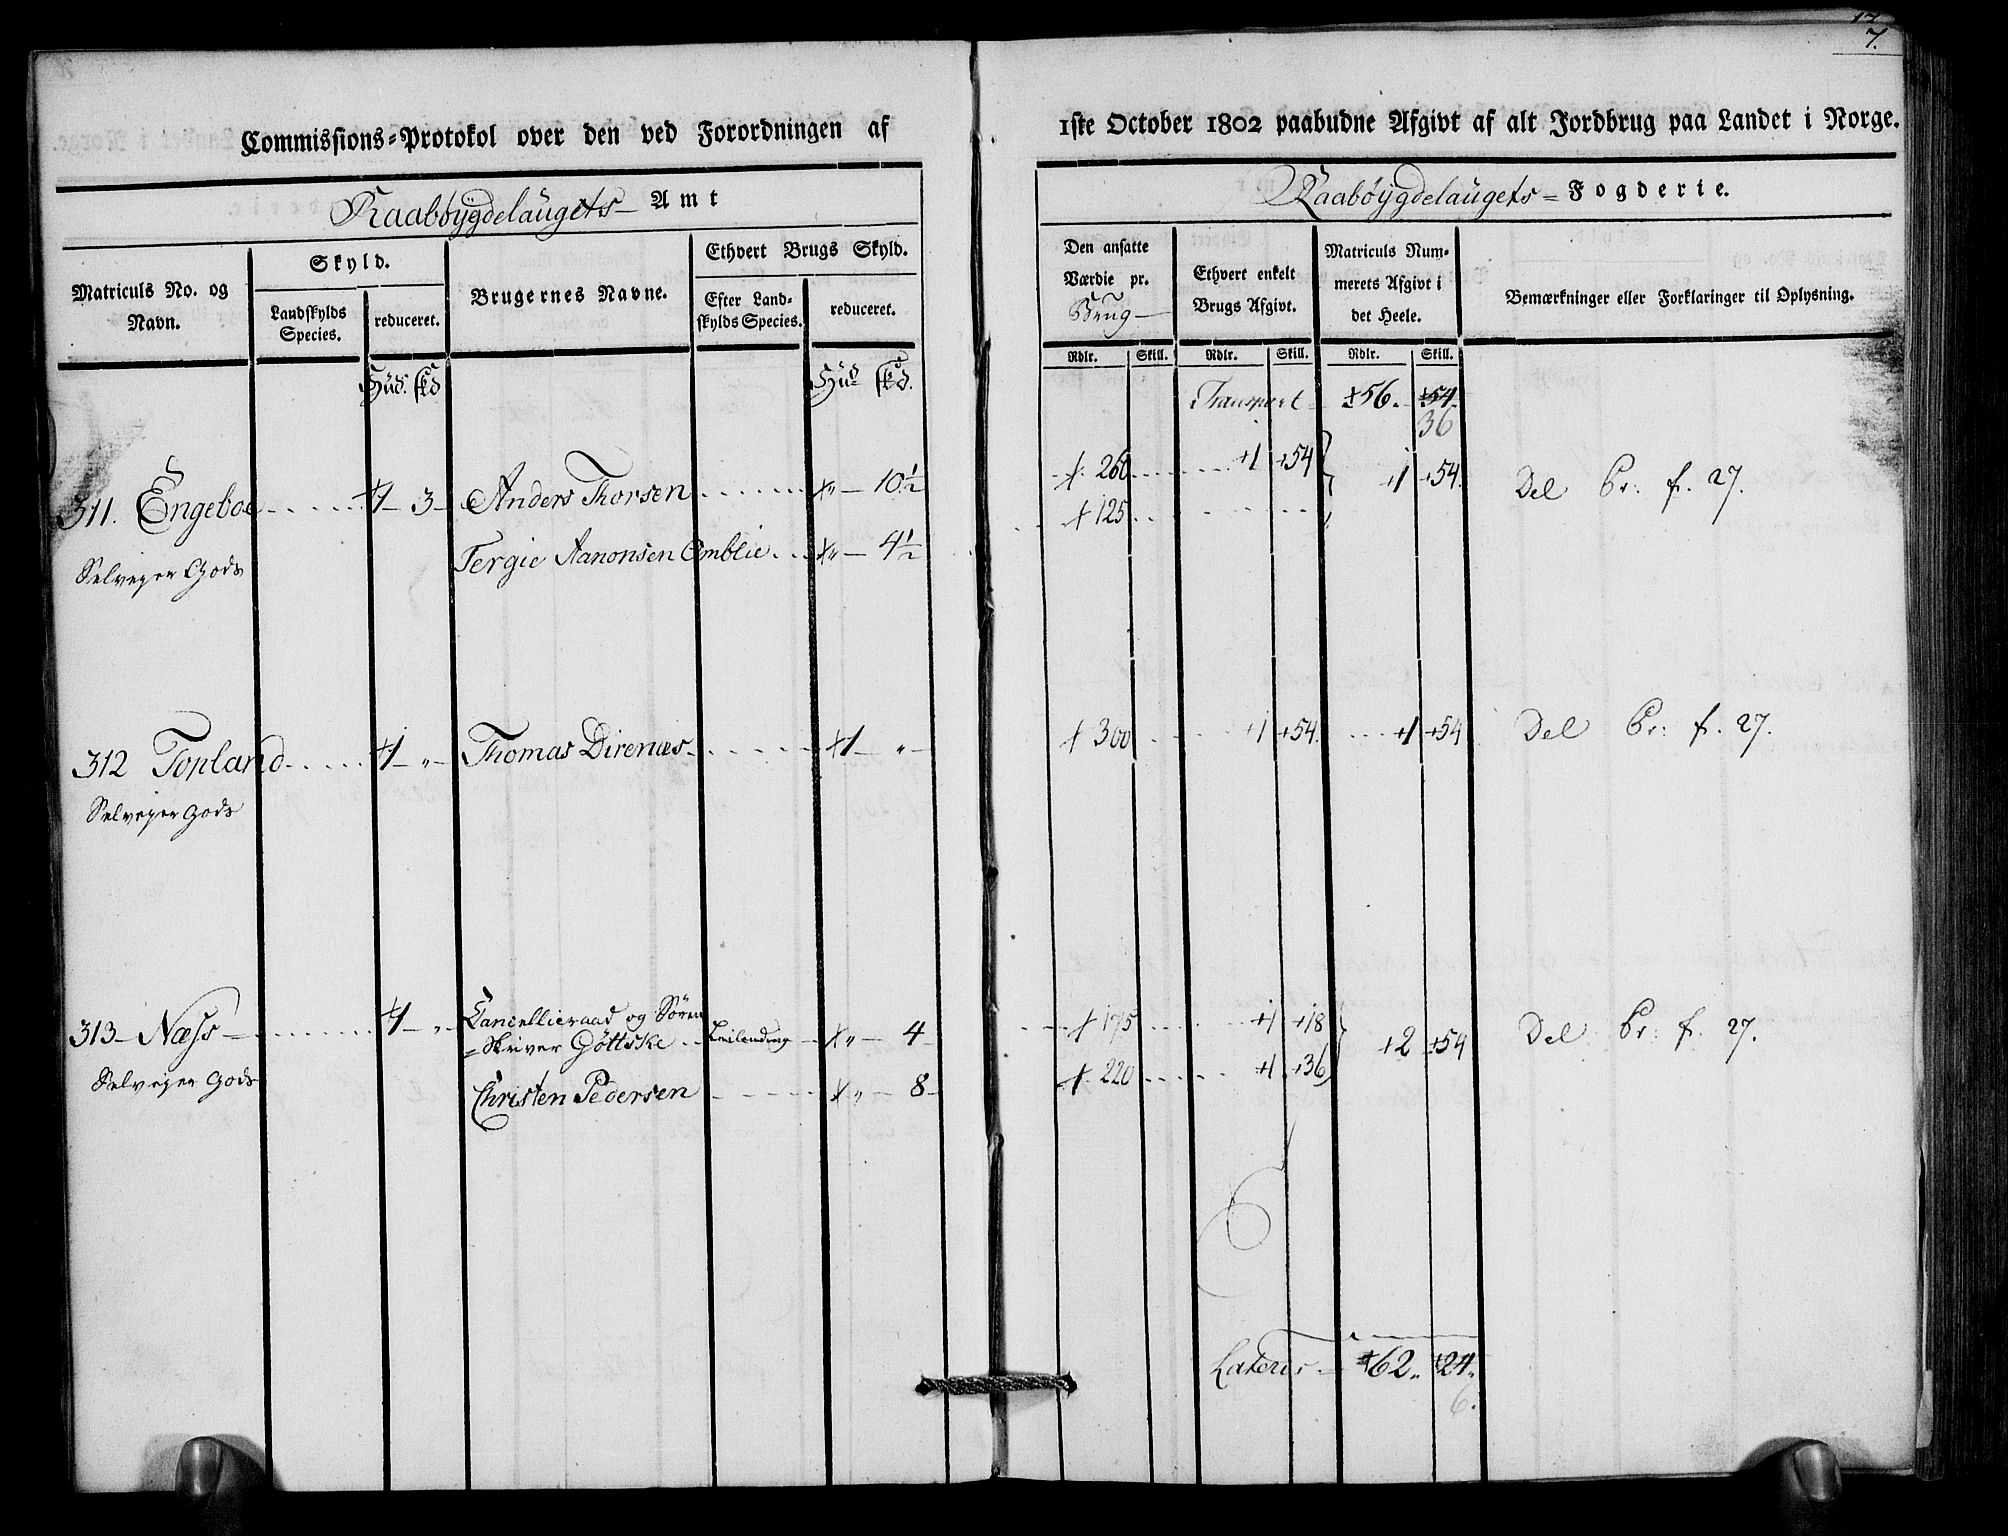 17
7.
Commissions-Protokol over den ved Forordningen af
1ste October 1802 paabudne Afgivt af alt Jordbrug paa Landet i Norge.
Raabøygdelaugets Amt
Raabøygdelaugets Fogderie.
Matriculs No. og Navn.
Skyld.
Landskylds Species.
reduceret.
Brugernes Navne.
Ethvert Brugs Skyld.
Efter Landskylds Species.
reduceret.
Den ansatte Værdie pr. Brug
Ethvert enkelt Brugs Afgivt.
Matriculs Nummerets Afgivt i det Heele.
Bemærkninger eller Forklaringer til Oplysning.
Rdlr. Skill. Rdlr. Skill. Rdlr. Skill.
Hud. skd
Hud skd.
Transport 56. 54.
36
311. Engeboe 1 - 3 - Anders Thorsen " - 10½ 260 1 54 1 54. Del Pr: f. 27.
Selveyer Gods Tergie Aanonsen Omblie " - 4½ 125
312 Topland 1 - " - Thomas Direnæs 1 - " - 300 1 54. 1 54 Del Pr: f. 27.
Selveyer Gods
313 - Næss 1 - " - Cancellieraad og Sören
=Skriver Göttske Leilending " - 4 175 1 18 2 54 Del Pr: f. 27.
Selveyer Gods Christen Pedersen " - 8 - 220 1 36
Lateris 62. 24.
6.